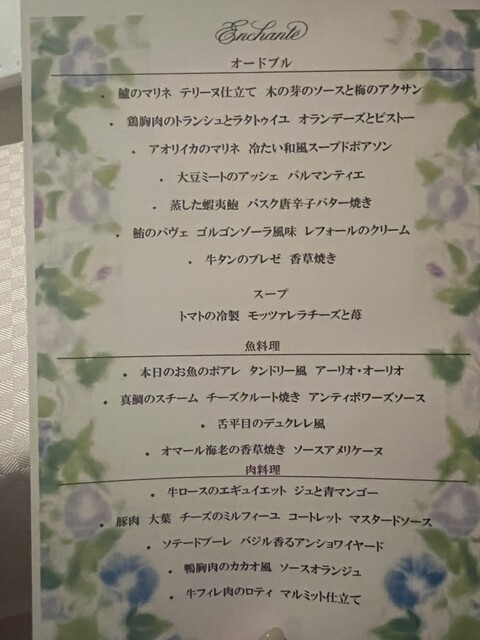 Enchante
オードブル
・ 鱸のマリネ テリーヌ仕立て 木の芽のソースと梅のアクサン
・ 鶏胸肉のトランシュとラタトゥイユ オランデーズとピストー
・ アオリイカのマリネ 冷たい和風スープドポアソン
・ 大豆ミートのアッシェ パルマンティエ
・ 蒸した蝦夷鮑 バスク唐辛子バター焼き
・ 鮪のパヴェ ゴルゴンゾーラ風味 レフォールのクリーム
・ 牛タンのブレゼ 香草焼き
スープ
トマトの冷製 モッツァレラチーズと苺
魚料理
・ 本日のお魚のポアレ タンドリー風 アーリオ・オーリオ
・ 真鯛のスチーム チーズクルート焼き アンティボワーズソース
・ 舌平目のデュクレレ風
・ オマール海老の香草焼き ソースアメリケーヌ
肉料理
・ 牛ロースのエギュイエット ジュと青マンゴー
・ 豚肉 大葉 チーズのミルフィーユ コートレット マスタードソース
・ ソテードプーレ バジル香るアンショワイヤード
・ 鴨胸肉のカカオ風 ソースオランジュ
・ 牛フィレ肉のロティ マルミット仕立て